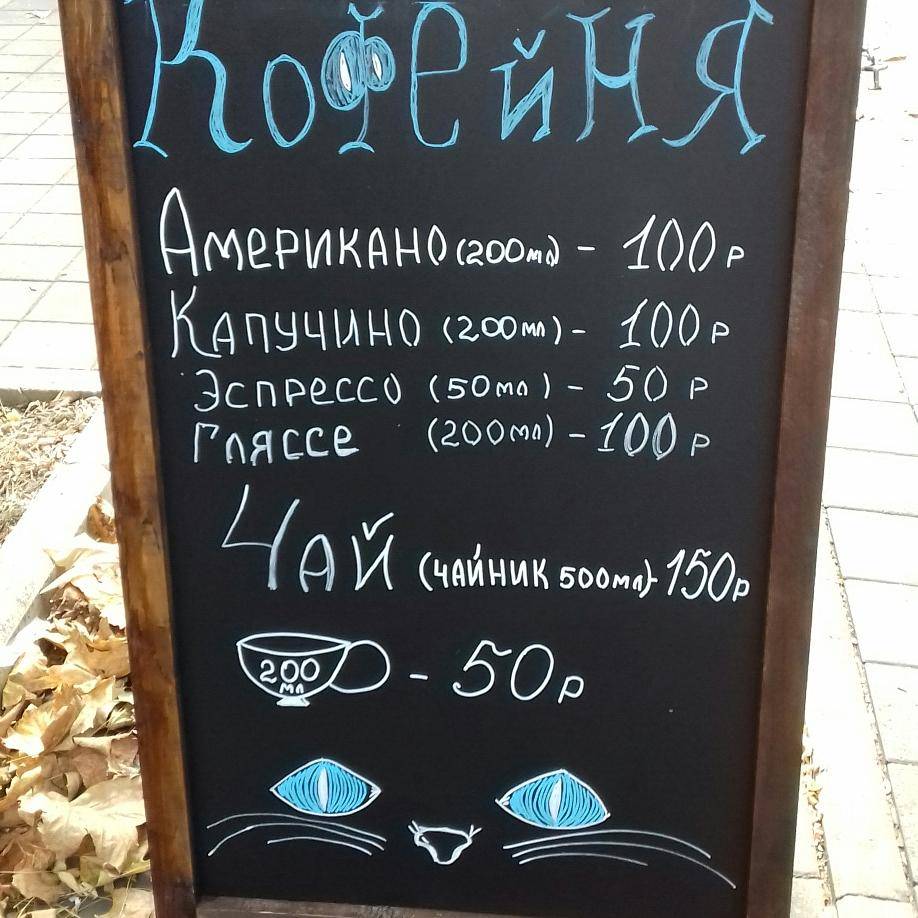 Кофейня
Американо (200мл) - 100р
Капучино (200мл) - 100р
Эспрессо (50мл) - 50 р
Гляссе (200мл) - 100р
Чай (чайник 500мл) - 150р
200 мл - 50р